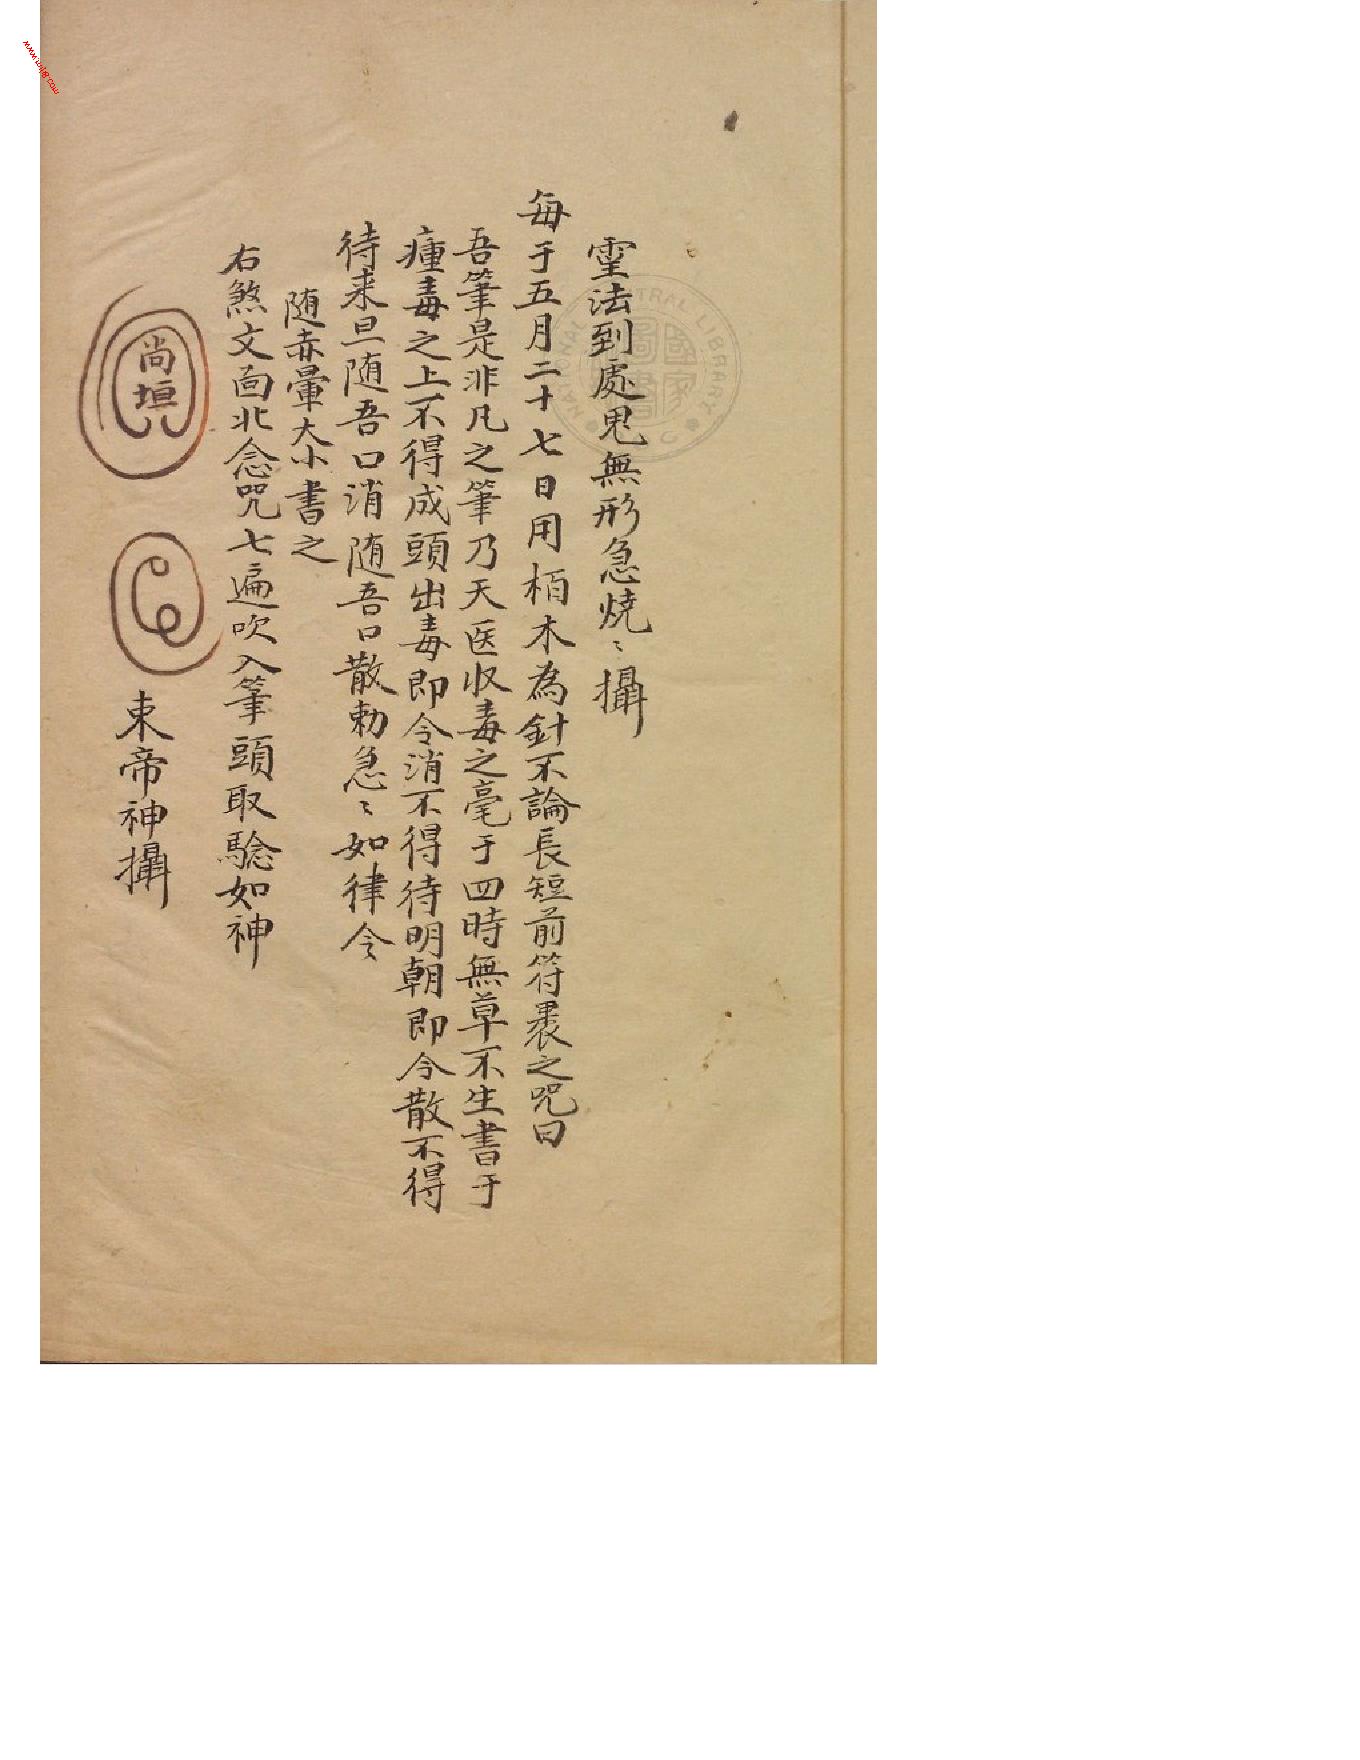 霊法到處鬼無形急燒〻攝
每于五月二十七日用栢木為針不論長短前符裹之咒曰
吾筆是非凡之筆乃天医收毒之毫于四時無草不生書于
瘇毒之上不得成頭出毒即令消不得待明朝即令散不得
待来旦随吾口消随吾口散勅急〻如律令
随赤暈大小書之
右煞文面北念咒七遍吹入筆頭取驗如神
尚垣
東帝神攝
NATIONAL CENTRAL LIBRARY
國家圖書